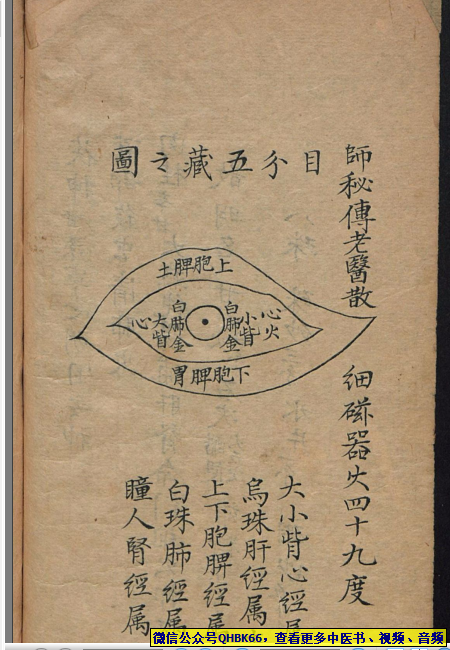 師秘傳老醫散 細磁器火四十九度
目分五藏之圖
上胞脾土
心火
小眥
白肺金
白肺金
大眥
心
下胞脾胃
大小眥心經属
烏珠肝經属
上下胞脾經属
白珠肺經属
瞳人腎經属
微信公众号QHBK66，查看更多中医书、视频、音频